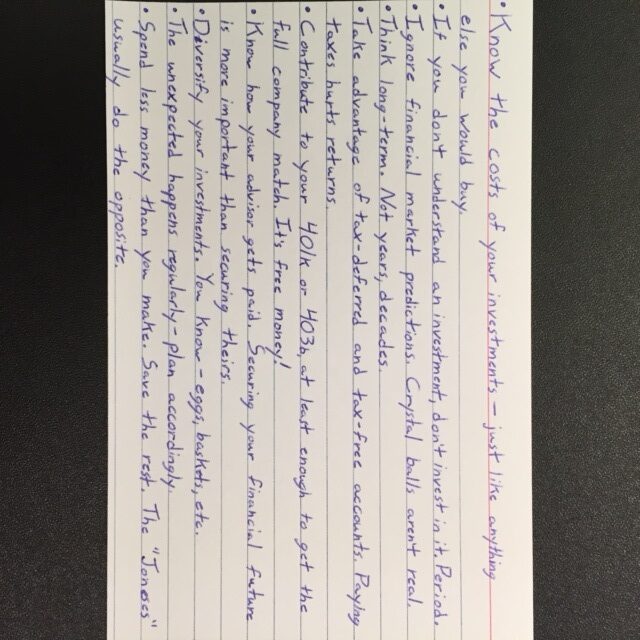 • Know the costs of your investments - just like anything
else you would buy.
• If you don't understand an investment, don't invest in it. Period.
• Ignore financial market predictions. Crystal balls aren't real.
• Think long-term. Not years, decades.
• Take advantage of tax-deferred and tax-free accounts. Paying
taxes hurts returns.
• Contribute to your 401k or 403b, at least enough to get the
full company match. It's free money!
• Know how your advisor gets paid. Securing your financial future
is more important than securing theirs.
• Diversify your investments. You know - eggs, baskets, etc.
• The unexpected happens regularly - plan accordingly.
• Spend less money than you make. Save the rest. The "Joneses"
usually do the opposite.